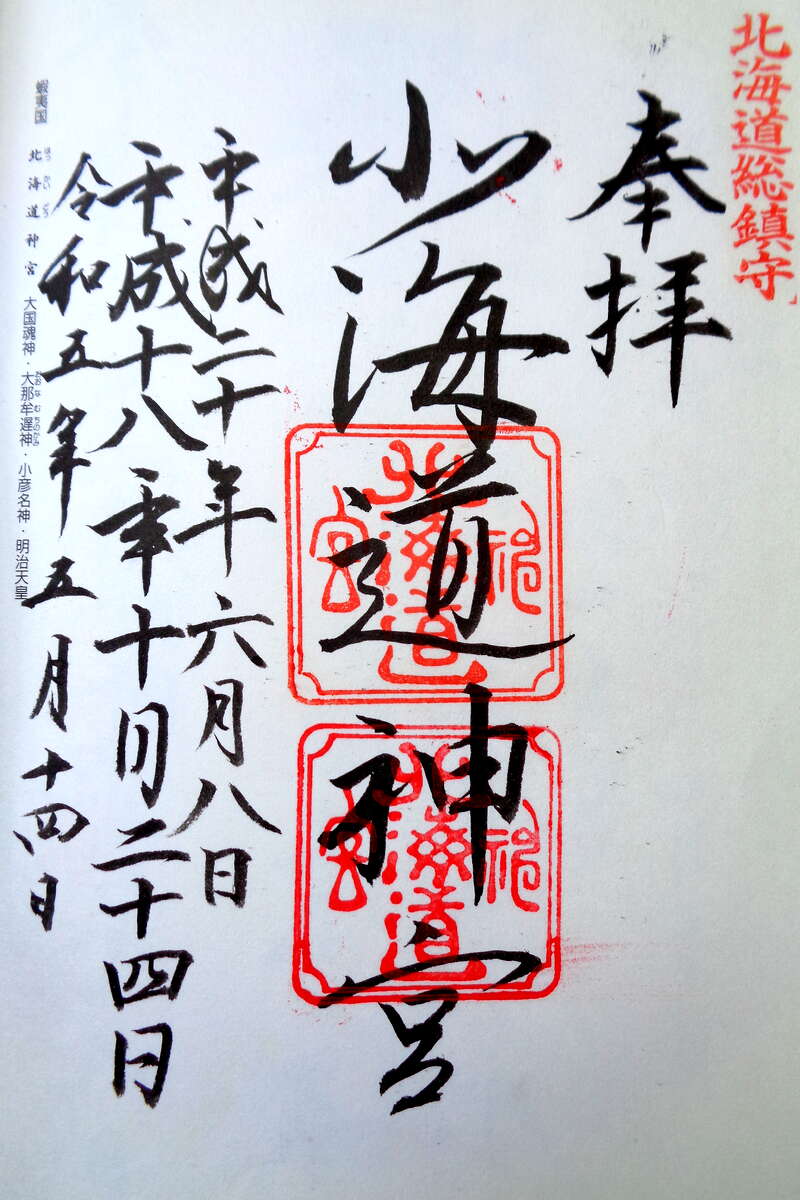 北海道総鎮守
奉拝
北海道神宮
北海道神宮
北海道神宮
平成二十年六月八日
平成十八年十月二十四日
令和五年五月十四日
蝦夷国 北海道神宮 大国魂神・大那牟遅神・小彦名神・明治天皇